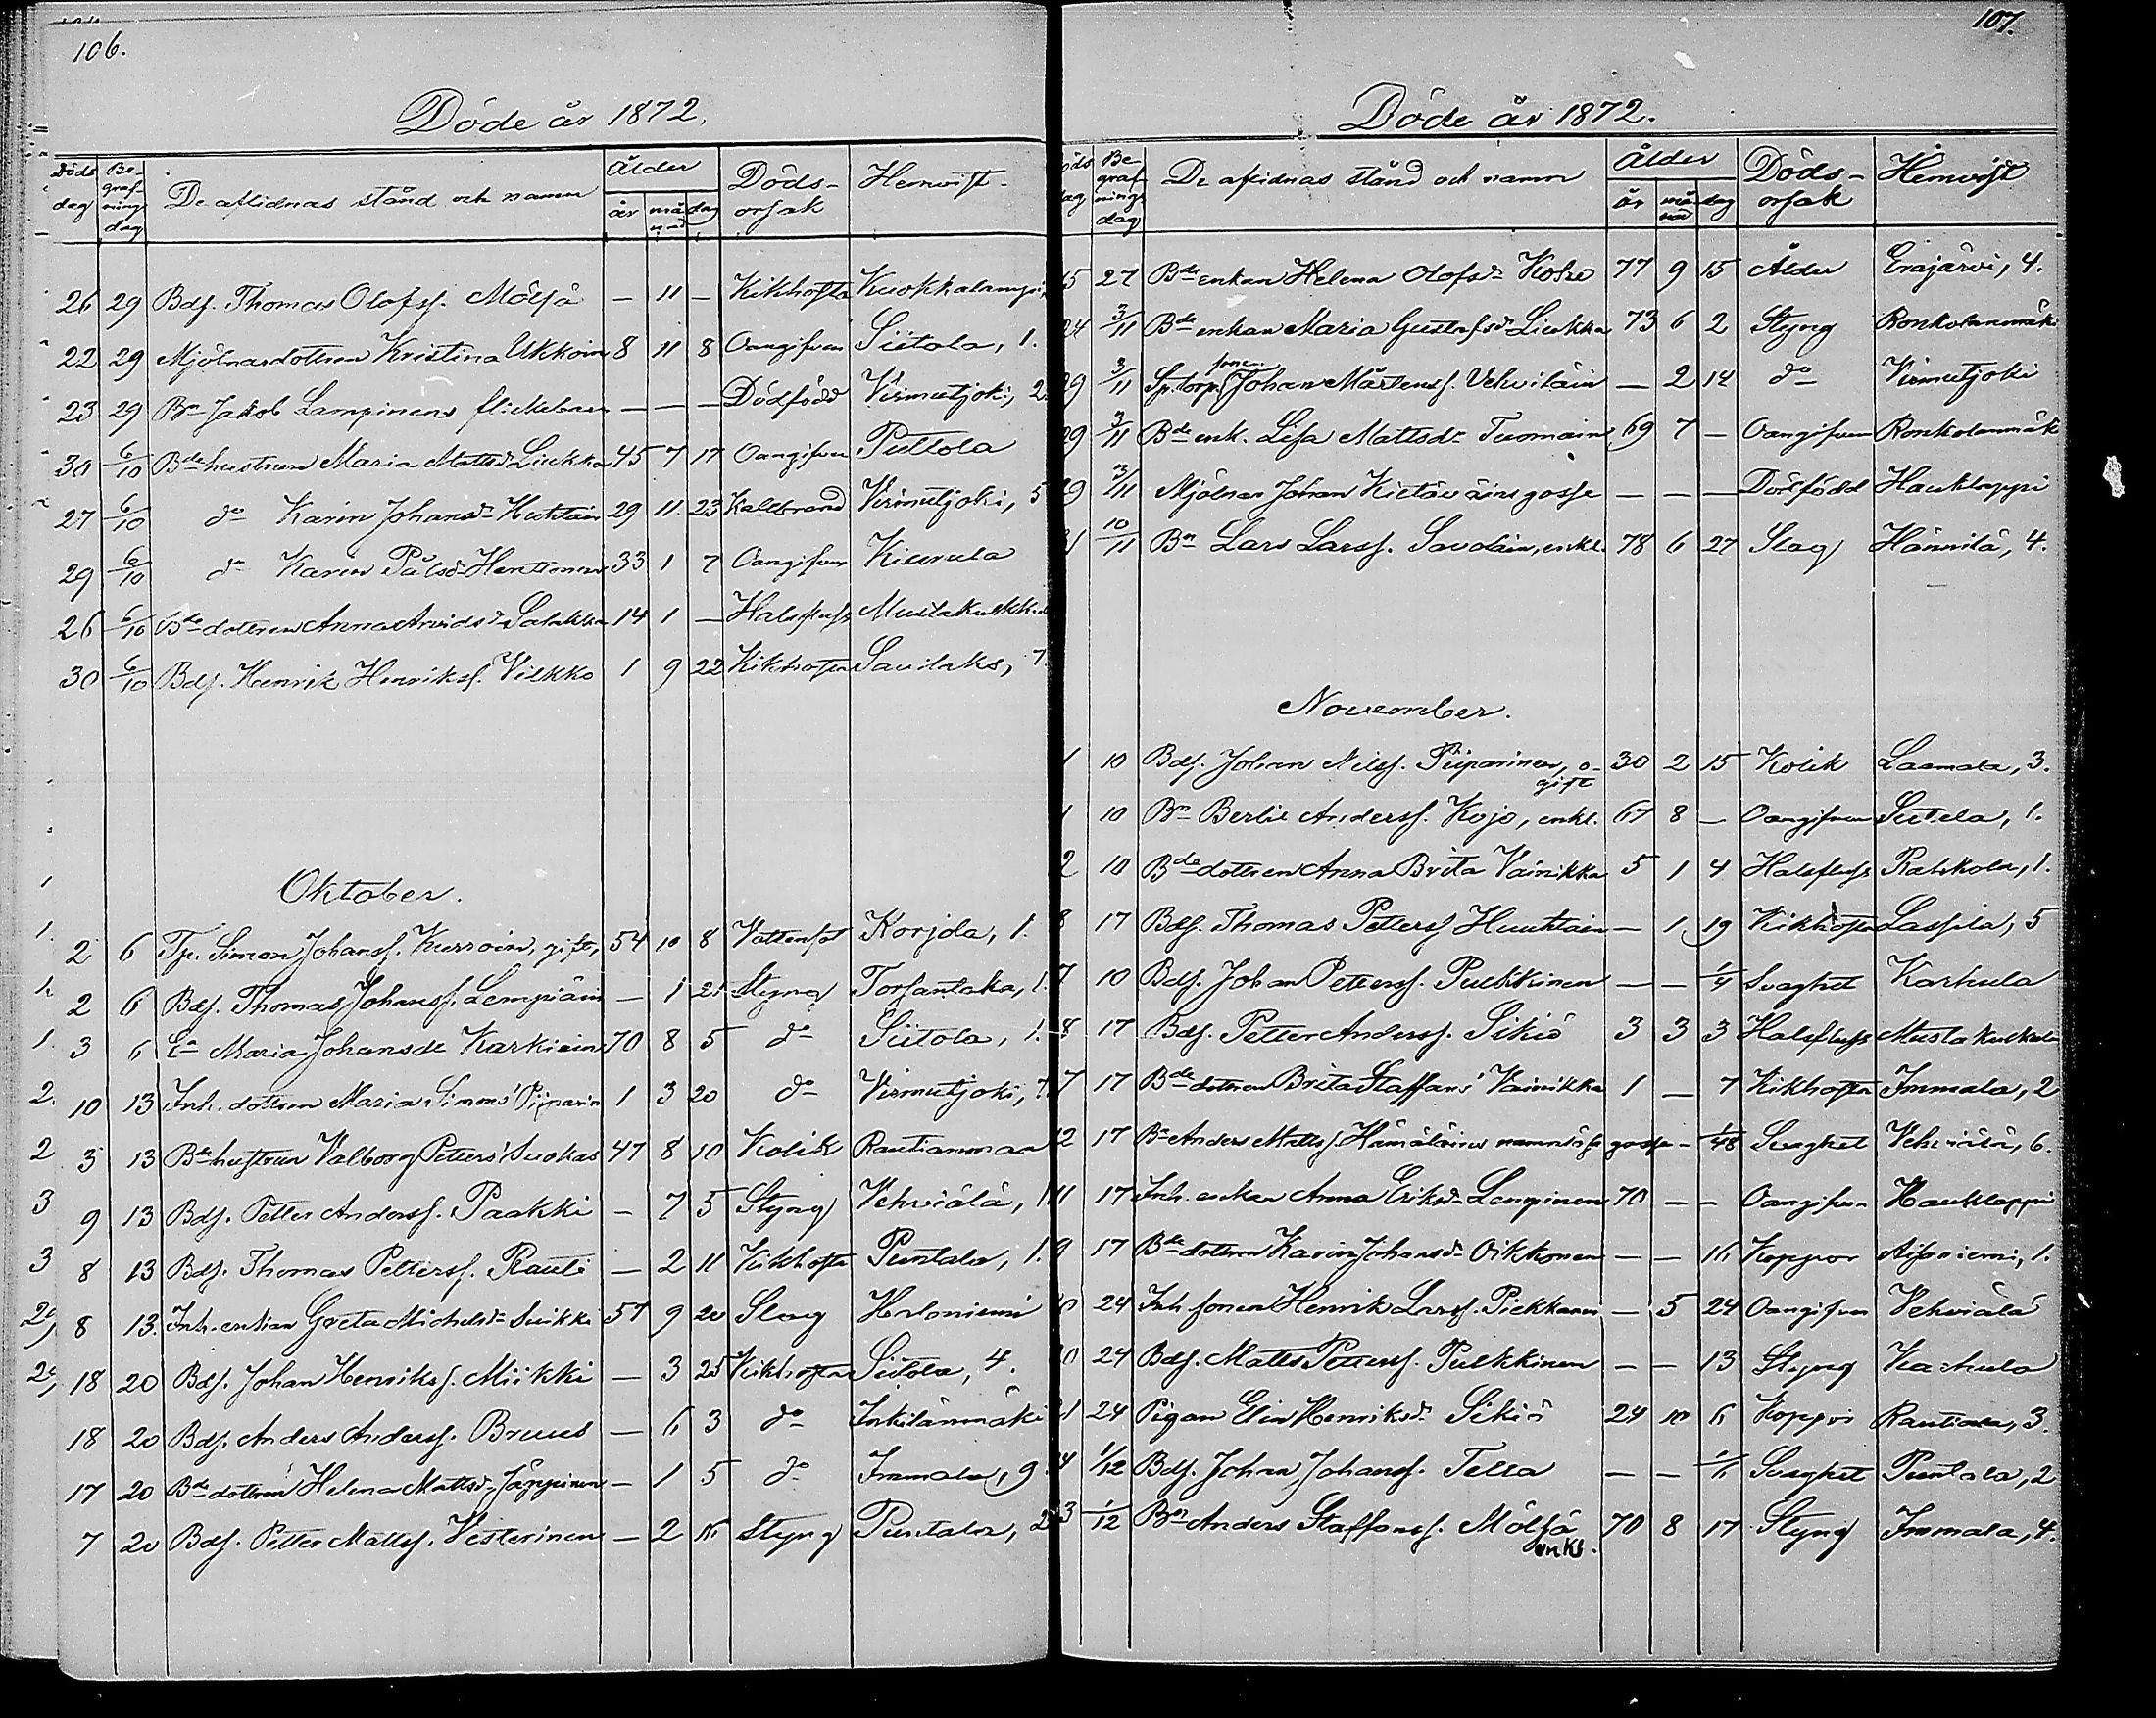 106.
Döde år 1872.
Döds dag | Be-graf-nings dag | De aflidnas stånd och namn | Ålder | år | månad | dag | Döds-orsak | Hemvist
26 29 Bdss. Thomas Olofss. Mölsä — 11 — Kikhosta
22 29 Mjölnardottren Kristina Ukkoin 8 11 8 Oangifven Siitola, 1.
23 29 Bn Jakob Lampinens flickebarn — — — Dödfödd Virmutjoki, 2
30 6/10 Bdehustrun Maria Mattsdr Liukka 45 7 17 Oangifven Puttola
27 6/10 do Karin Johansdr Huhtain 29 11 23 Kallbrand Virmutjoki, 5
29 6/10 do Karin Pålsdr Henttonen 33 1 7 Oangifven Kiurula
26 6/10 Bdedottren Anna Arvidsdr 14 1 — Halsfluss
30 6/10 Bdss. Henrik Henrikss. Vilkko 1 9 22 Kikhosta Savilaks, 7
Oktober.
2 6 Simon Johanss. Kurroin, gift, 54 10 8 Vattensot Korjola, 1.
2 6 Bdss. Thomas Johanss. Lempiäin — 1 21 Styng Torsantaka, 1.
3 6 Maria Johansdr Karkiain 70 8 5 do Siitola, 1.
10 13 Inh. dottren Maria Simonsdr Piiparin 1 3 20 do Virmutjoki, 7
3 13 Bdehustrun Valborg Pettersdr Suokas 47 8 10 Kolik Rautianmaa
9 13 Bdss. Petter Anderss. Paakki — 7 5 Styng Vehviälä, 1
8 13 Bdss. Thomas Petterss. Rauti — 2 11 Kikhosta Puntala, 1.
8 13. Inh. enkan Greta Michelsdr Suikki 57 9 20 Slag Haloniemi
18 20 Bdss. Johan Henrikss. Miikki — 3 25 Kikhosta Siitola, 4.
18 20 Bdss. Anders Anderss. Bruus — 6 3 do Inkilänmäki
17 20 Bdedottren Helena Mattsdr Jäppinen — 1 5 do Immala, 9
7 20 Bdss. Petter Mattss. Vesterinen — 2 16 Styng Puntala, 2
107.
Döde år 1872.
Döds dag | Be-graf-nings dag | De aflidnas stånd och namn | Ålder | år | månad | dag | Döds-orsak | Hemvist
5 27 Bdeenkan Helena Olofsdr Koho 77 9 15 Ålder Eräjärvi, 4.
24 3/11 Bdeenkan Maria Gustafsdr Liukka 73 6 2 Styng Ronkolanmäki
29 3/11 Sp. torp. sonen Johan Mårtenss. Vehviläin — 2 14 do Virmutjoki
29 3/11 Bdeenk. Lisa Mattsdr Tuomain 69 7 — Oangifven Ronkolanmäk
29 3/11 Mjölnar Johan Kietäväins gosse — — — Dödfödd Hauklappi
31 10/11 Bn Lars Larss. Savolain, enkl. 78 6 27 Slag Hännilä, 4.
November.
1 10 Bdss. Johan Nilss. Piiparinen, o-gift 30 2 15 Kolik Laamala, 3.
1 10 Bn Bertil Anderss. Kojo, enkl. 67 8 — Oangifven Siitola, 1.
2 10 Bdedottren Anna Brita Vainikka 5 1 4 Halsfluss Rahkola, 1.
8 17 Bdss. Thomas Petterss. Huuhtain — 1 19 Kikhosta Lassila, 5
7 10 Bdss. Johan Petterss. Pulkkinen — — 1/4 Svaghet Karhula
8 17 Bdss. Petter Anderss. Sikiö 3 3 3 Halsfluss Mustakulkula
7 17 Bdedottren Brita Staffansdr Vainikka 1 — 7 Kikhosta Immala, 2
12 17 Bn Anders Mattss. Hämäläins namnlösa gosse — 1/48 Svaghet Vehviälä, 6.
11 17 Inh. enkan Anna Eriksdr Lempinen 70 — — Oangifven Hauklappi
9 17 Bdedottren Karin Johansdr Oikkonen — — 16 Koppor Äitsaniemi, 1.
24 Inh. sonen Henrik Larss. — 5 24 Oangifven Vehviälä
20 24 Bdss. Matts Petterss. Pulkkinen — — 13 Styng Karhula
21 24 Pigan Elin Henriksdr Sikiö 24 10 6 Koppor Rautiala, 3.
24 1/12 Bdss. Johan Johanss. Tella — — Svaghet Puntala, 2
23 1/12 Bn Anders Staffanss. Mölsä enkl. 70 8 17 Styng Immala, 4.